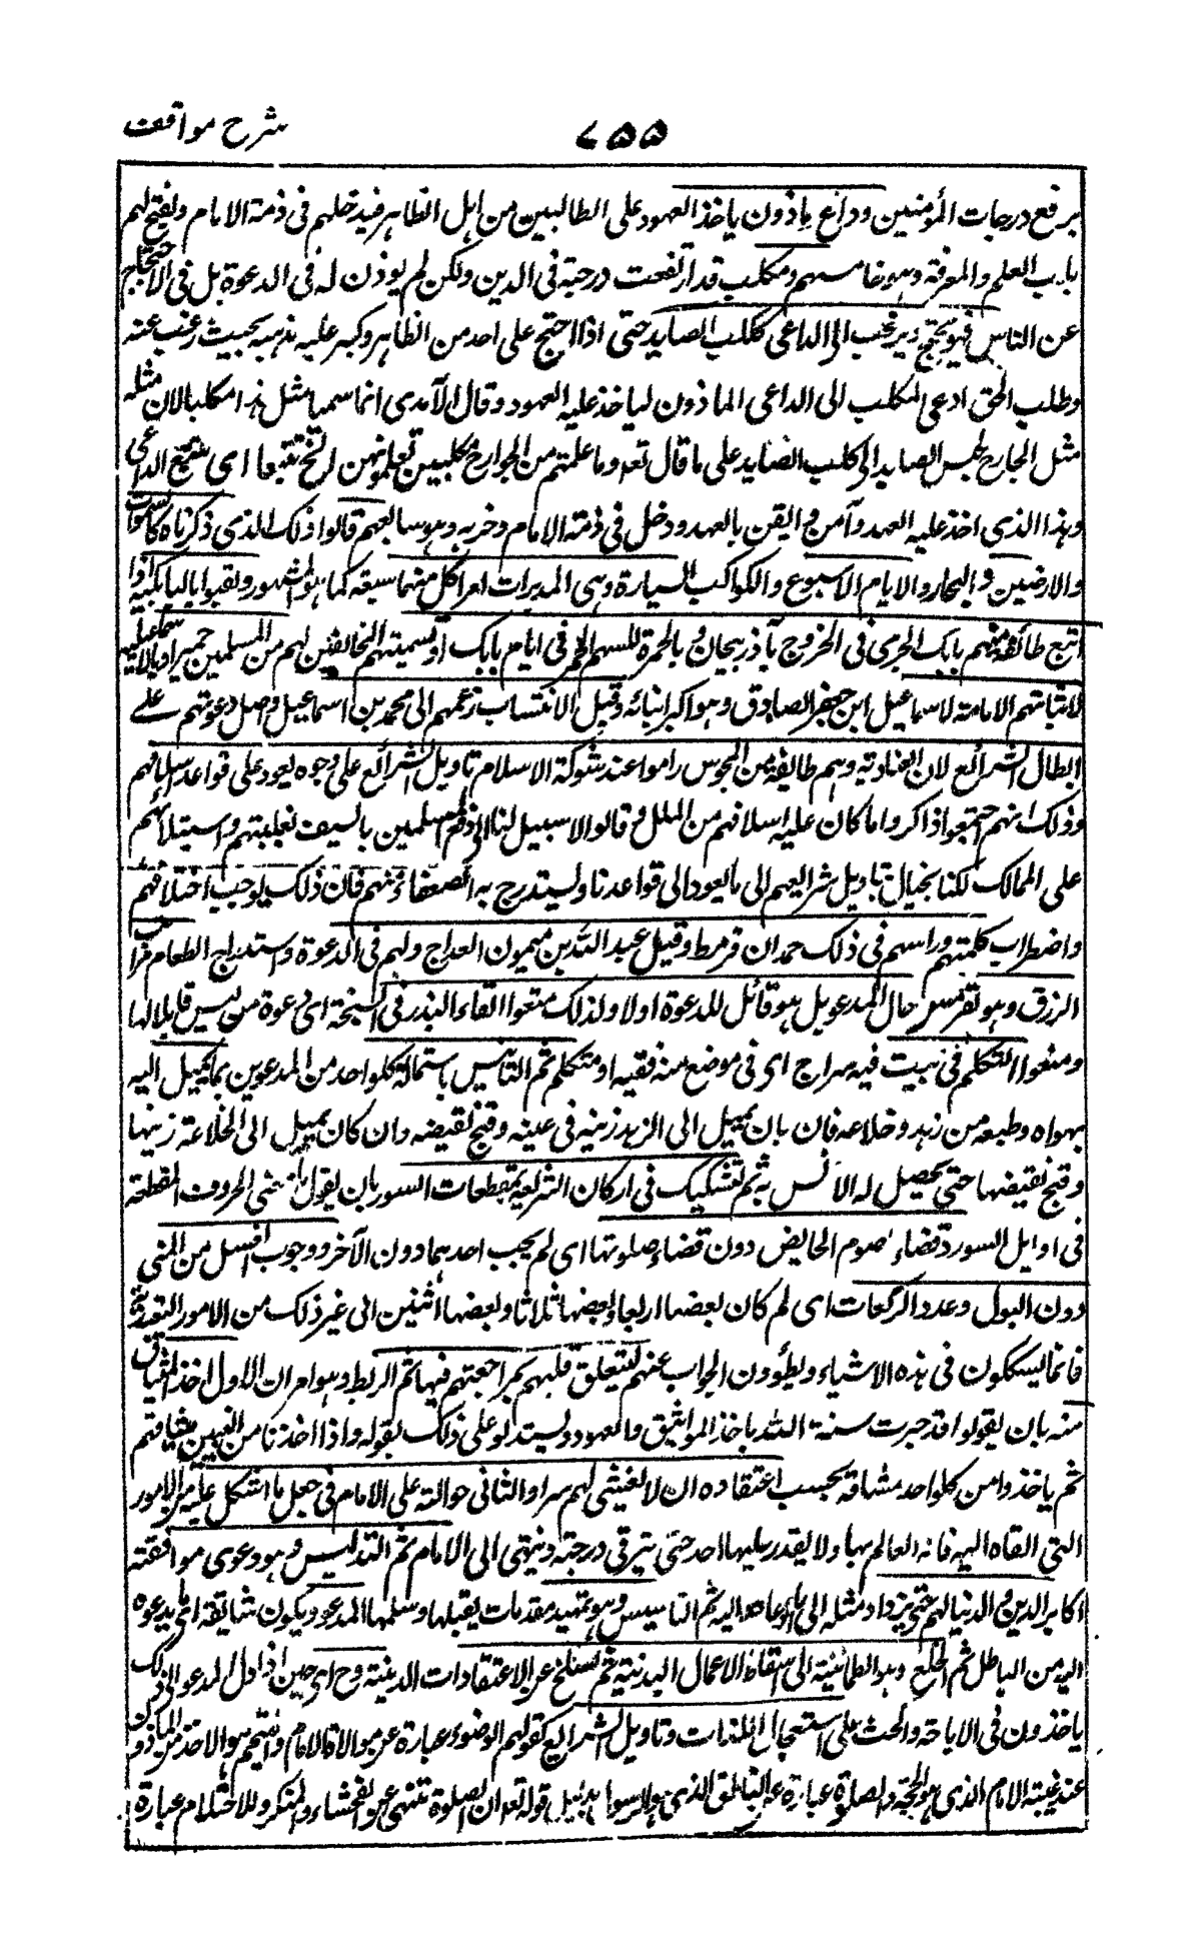 شرح مواقف
٧٥٥
يرفع درجات المؤمنين وداع ماذون ياخذ العهود على الطالبين من اهل الظاهر فيدخلهم فى ذمة الامام ويفتح لهم
باب العلم والمعرفة وهو خامسهم ومكلب قد ارتفعت درجته فى الدين ولكن لم يوذن له فى الدعوة بل فى الاحتجاج
عن الناس فهو يحتج ويرغب الى الداعى ككلب الصايد حتى اذا احتج على احد من الظاهر وكسر عليه مذهبه بحيث رغب عنه
وطلب الحق ادعى المكلب الى الداعى الماذون لياخذ عليه العهود وقال الآمدى انما سميا مثل هذا مكلبا لان مثله
مثل الجارح يحبس الصايد الى كلب الصايد على ما قال تعه وما علمتم من الجوارح مكلبين تعلمونهن الخ تتبعا اى يتبع الداعى
وهذا الذى اخذ عليه العهد وآمن و ايقن بالعهد ودخل فى ذمة الامام وحزبه وهو سابعهم قالوا ذلك الذى ذكرناه كالسموات
والارضين والبحار والايام الاسبوع والكواكب السيارة وهى المدبرات امرا كل منهما سبعة كما هو المشهور ولقبوا بالبابكية اذا
اتبع طائفة منهم بابك الجرى فى الخروج بآذربيجان وبالحمرة للبسهم الحمر فى ايام بابك او تسميتهم المخالفين لهم من المسلمين حميرا وبالاسماعيلية
لاثباتهم الامامة لاسماعيل ابن جعفر الصادق وهو اكبر ابنائه وقيل الانتساب زعمهم الى محمد بن اسماعيل واصل دعوتهم على
ابطال الشرائع لان الغبادية وهم طايفة من المجوس راموا عند شوكة الاسلام تاويل الشرائع على وجوه يعود على قواعد اسلافهم
وذلك انهم اجتمعوا فذاكروا ما كان عليه اسلافهم من الملل و قالوا لا سبيل لنا الى دفع المسلمين بالسيف لغلبتهم واستيلائهم
على الممالك لكنا بحيال بتاويل شرايعهم الى ما يعود الى قواعدنا وليستدرج به الضعفاء منهم فان ذلك يوجب اختلافهم
واضطراب كلمتهم وراسهم فى ذلك حمدان قرمط وقيل عبد الله بن ميمون القداح ولهم فى الدعوة واستدراج الطعام مراتب
الزرق وهو تفرس حال المدعو بل هو قائل للدعوة اولا ولذلك منعوا القاء البذر فى السبخة اى دعوة من ليس قابلا لها
ومنعوا التكلم فى بيت فيه سراج اى فى موضع منه فقيه او متكلم ثم التانيس باستمالة كلو احد من المدعوين بما يميل اليه
بهواه وطبعه من زهد وخلاعه فان بان يميل الى الزهد زينه فى عينه وقبح نقيضه وان كان يميل الى الخلاعة زينها
وقبح نقيضها حتى يحصل له الانس به ثم التشكيك فى اركان الشريعة بمقطعات السور بان يقول ما معنى الحروف المقطعة
فى اوايل السور وقضاء صوم الحايض دون قضاء صلوتها اى لم يجب احدهما دون الآخر ووجوب الغسل من المنى
دون البول وعدد الركعات اى لم كان بعضها اربعا وبعضها ثلاثا وبعضها اثنين الى غير ذلك من الامور التعبدية
فانما يشككون فى هذه الاشياء ويطوون الجواب عنهم ليتعلق قلبهم بمراجعتهم فيها ثم الربط وهو امران الاول اخذ الميثاق
منه بان يقولوا قد جرت سنة الله باخذ المواثيق والعهود ويستدلو على ذلك بقوله واذا اخذنا من النبيين ميثاقهم
ثم ياخذوا من كلو احد مثاقه بحسب اعتقاده ان لا يفشى لهم سرا والثانى حوالته على الامام فى حل ما اشكل عليه من الامور
التى القاه اليه فانه العالم بها ولا يقدر عليها احد حتى يترقى درجته وينتهى الى الامام ثم التدليس وهو دعوى موافقته
اكابر الدين والدنيا لهم حتى يزداد مثله الى ما دعاه اليه ثم التاسيس وهو تمهيد مقدمات يقبلها وسلمها المدعو ويكون شايقة الى ما يدعوه
اليه من الباطل ثم الخلع وهو الطمانينة الى اسقاط الاعمال البدنية ثم السلخ عن الاعتقادات الدينية وح اى حين اذ اول المدعو الى ذلك
ياخذون فى الاباحة والحث على استعجال اللذات وتاويل الشرايع كقولهم الوضوء عبارة عن موالاة الامام والتيمم هو الاخذ من الماذون
عند غيبة الامام الذى هو الحجة والصلوة عبارة عن الناطق الذى هو الرسول بدليل قوله تعه ان الصلوة تنهى عن الفحشاء والمنكر والاحتلام عبارة